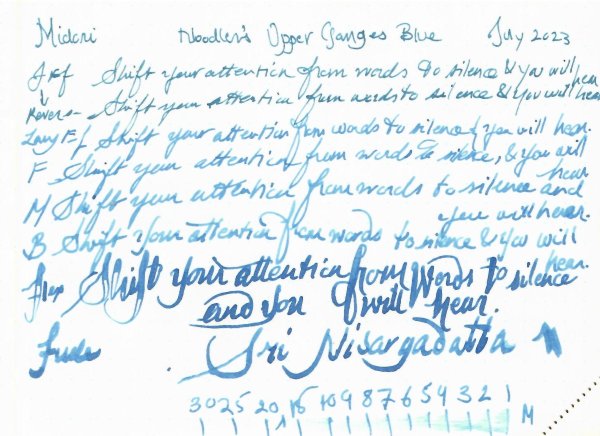 Midori Noodler's Upper Ganges Blue July 2023
Shift your attention from words to silence & you will hear
Reverse Shift your attention from words to silence & you will hear
Lamy Shift your attention from words to silence & you will hear.
F Shift your attention from words to silence, & you will hear
M Shift your attention from words to silence and
you will hear.
B Shift your attention from words to silence & you will
hear.
Flex Shift your attention from words to silence
and you will hear.
Fude Sri Nisargadatta
30 25 20 15 10 9 8 7 6 5 4 3 2 1
M